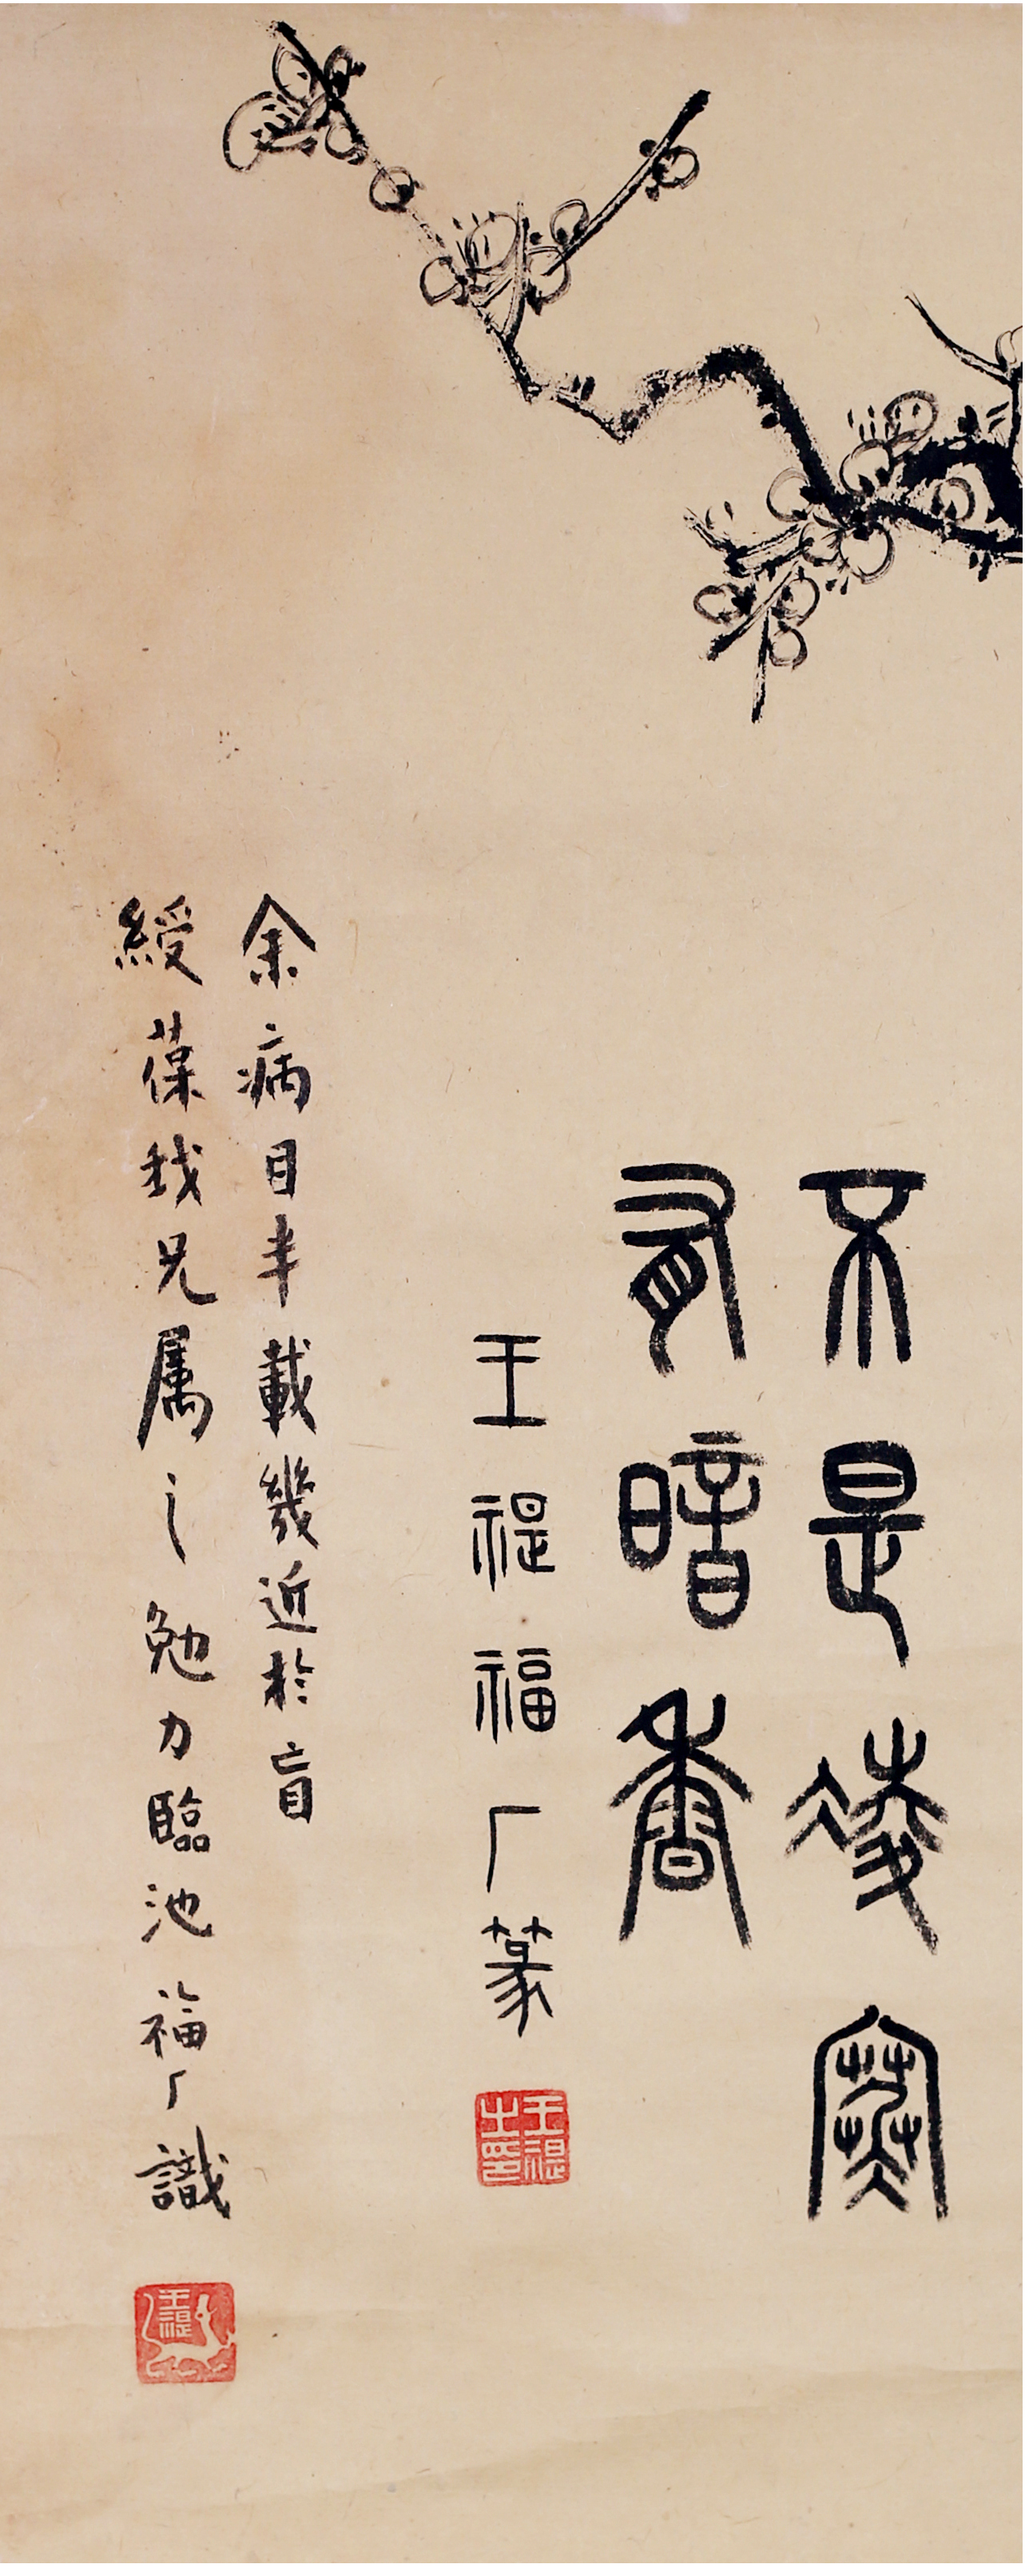 不是凌寒
有暗香
王禔福厂篆
王禔之印
余病目半載幾近於盲
綬葆我兄属之勉力臨池福厂識
王禔